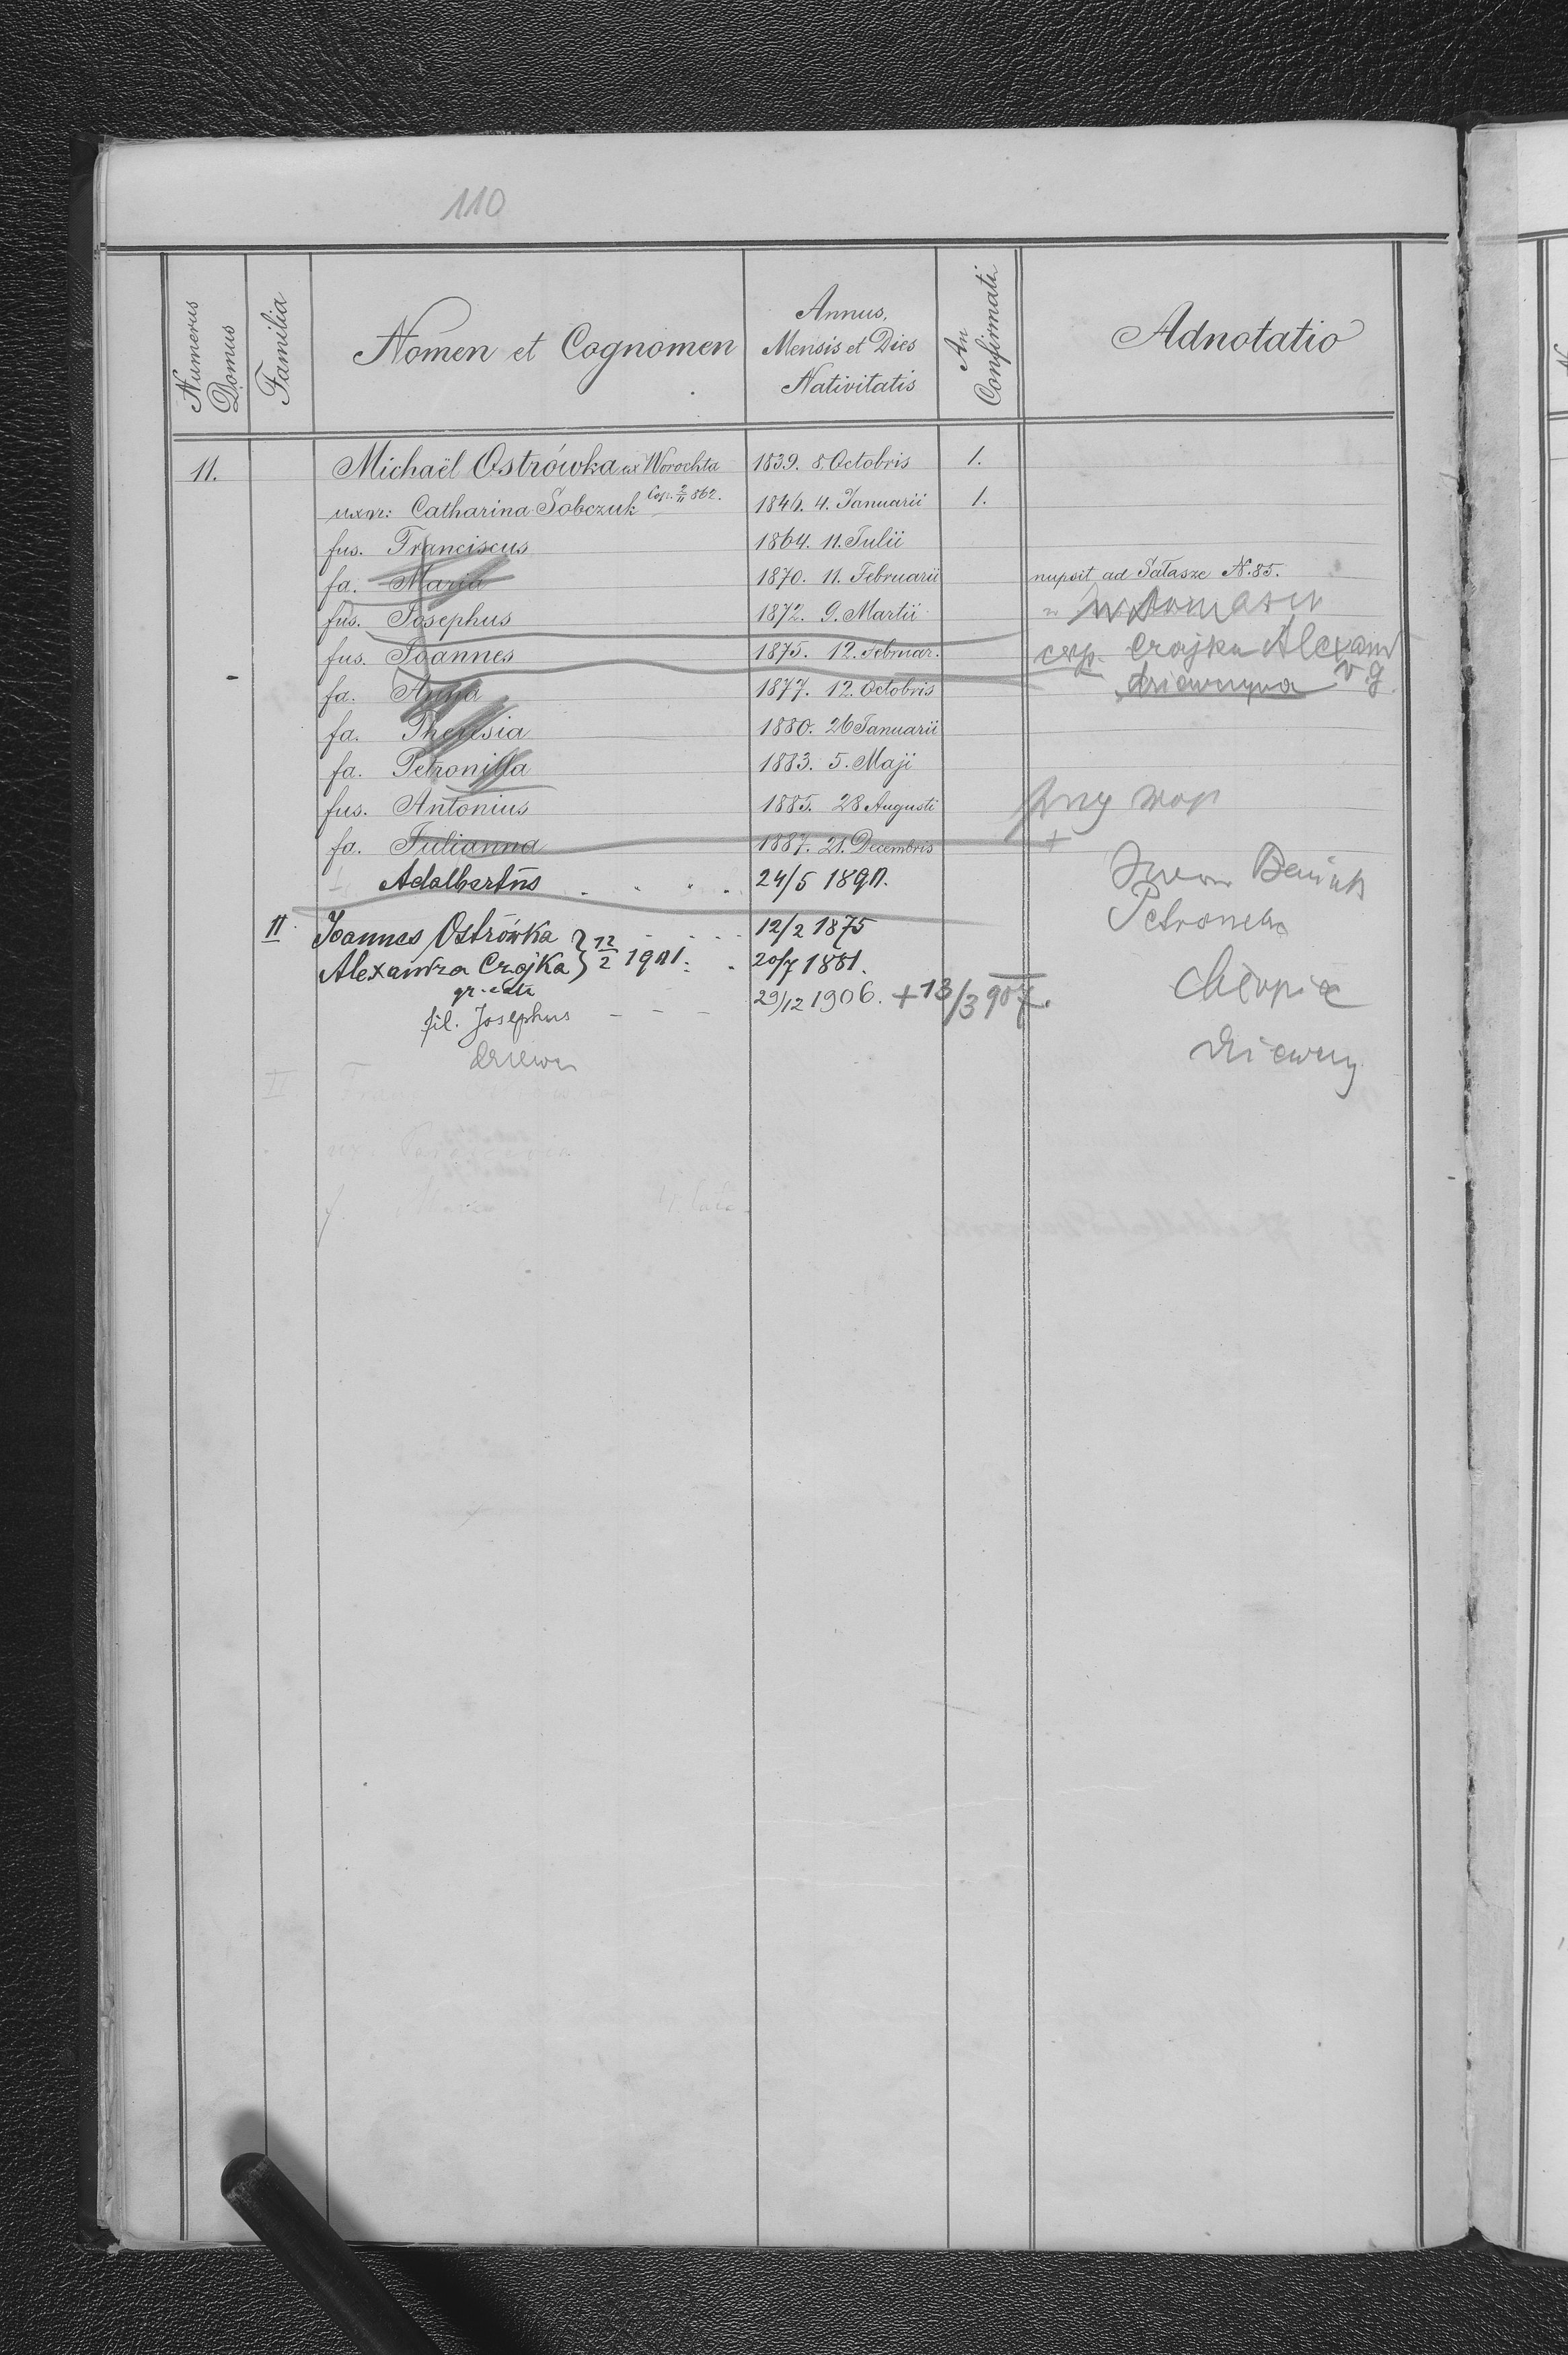 110
Numerus Domus
Familia
Nomen et Cognomen
Annus, Mensis et Dies Nativitatis
An Confirmati
Adnotatio
11. Michaël Ostrówka ex Worochta 1839. 8. Octobris 1.
uxor: Catharina Sobczuk Cop. 2/11 862. 1846. 4. Januarii 1.
fus. Franciscus 1864. 11. Julii
fa. Maria 1870. 11. Februarii nupsit ad Sałasze N. 85.
fus. Josephus 1872. 9. Martii
fus. Joannes 1875. 12. Februar. cop. Czajka Alexand
fa. Anna 1877. 12. Octobris dziewczyna v g.
fa. Theresia 1880. 26 Januarii
fa. Petronilla 1883. 5. Maji
fus. Antonius 1885. 28 Augusti
fa. Julianna 1887. 21. Decembris +
Adalbertus 24/5 1890.
Petronela
II. Joannes Ostrówka 12/2 1875
Alexandra Czajka } 12/2 1901. 20/7 1881.
gr. cath
fil. Josephus 29/12 1906. + 13/3 907.